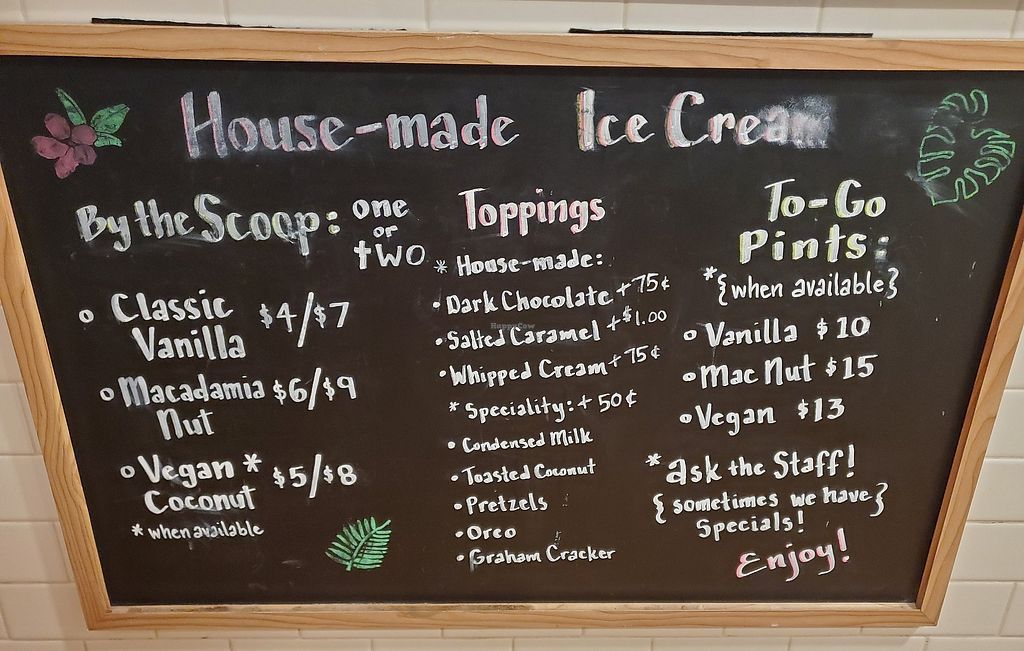 House-made Ice Cream
By the Scoop: one or two
o Classic Vanilla $4/$7
o Macadamia Nut $6/$9
o Vegan * Coconut $5/$8
* when available
Toppings
* House-made:
• Dark Chocolate +75¢
• Salted Caramel +$1.00
• Whipped Cream +75¢
* Speciality: + 50¢
• Condensed Milk
• Toasted Coconut
• Pretzels
• Oreo
• Graham Cracker
To-Go
Pints:
*{when available}
o Vanilla $10
o Mac Nut $15
o Vegan $13
*ask the Staff!
{sometimes we have}
Specials!
Enjoy!
HappyCow